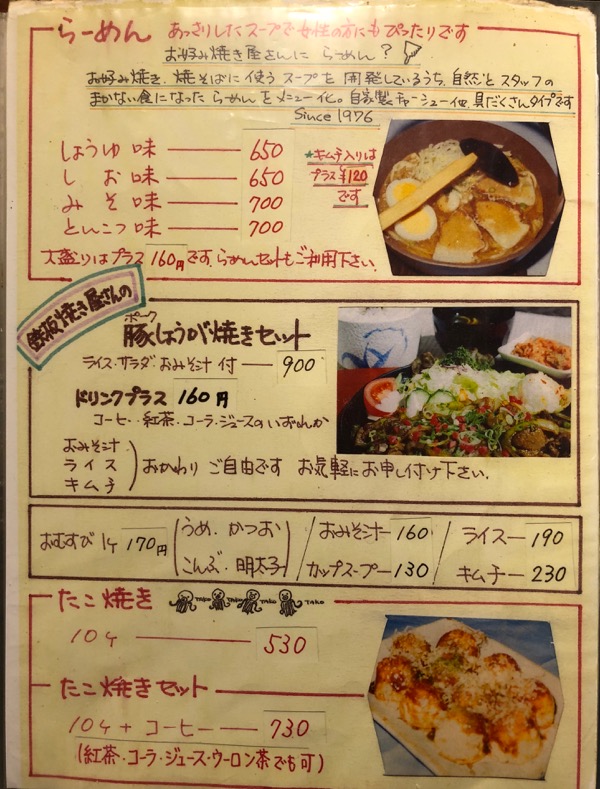 らーめん あっさりしたスープで女性の方にもぴったりです
お好み焼き屋さんに らーめん?
お好み焼き、焼そばに使う スープを 開発しているうち、自然とスタッフの
まかない食になった らーめんをメニュー化。自家製チャーシュー他、具だくさんタイプです
Since 1976
しょうゆ味 650
しお味 650
みそ味 700
とんこつ味 700
★キムチ入りは
プラス¥120
です
大盛りはプラス160円です。らーめんセットもご利用下さい。
鉄板焼き屋さんの
ポーク
豚しょうが焼きセット
ライス・サラダ・おみそ汁 付 900
ドリンクプラス 160円
コーヒー・紅茶・コーラ・ジュースのいずれか
おみそ汁
ライス
キムチ
おかわり ご自由です お気軽にお申し付け下さい。
おむすび 1ケ 170円
うめ・かつお
こんぶ・明太子
おみそ汁 160
カップスープ 130
ライス 190
キムチ 230
たこ焼き TAKO TAKO TAKO TAKO
10ケ 530
たこ焼きセット
10ケ+コーヒー 730
(紅茶・コーラ・ジュース・ウーロン茶でも可)